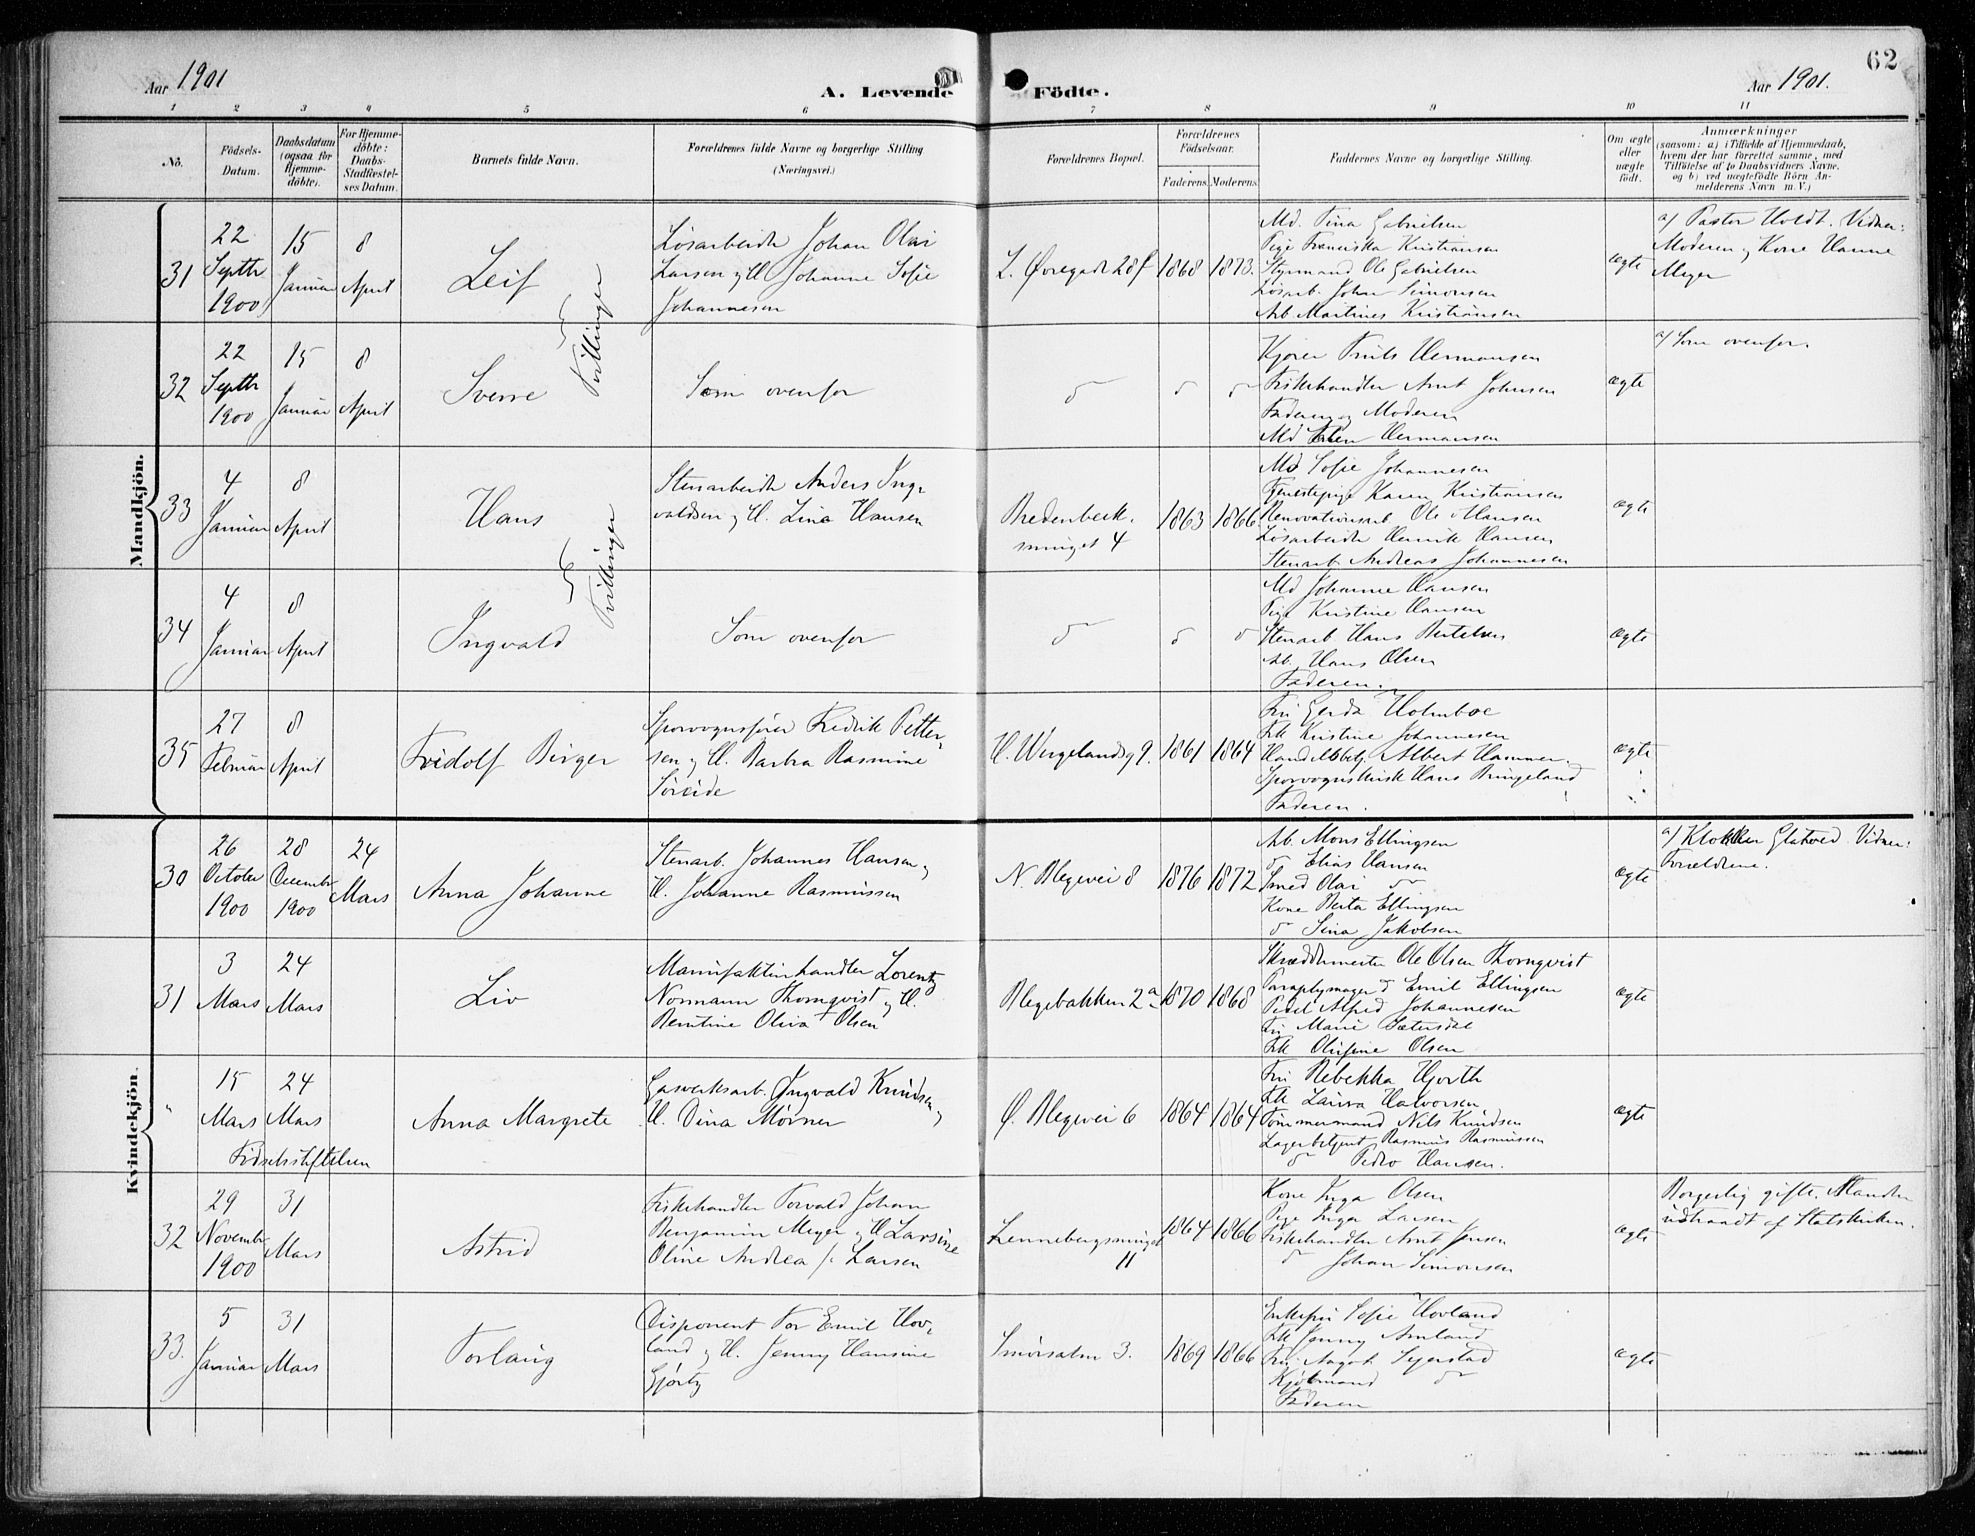 62
Aar 1901
A. Levende Födte.
Aar 1901.
1 2 3 4 5 6 7 8 9 10 11
No.
Födsels-Datum.
Daabsdatum (ogsaa for Hjemme-döbte).
For Hjemme-döbte: Daabs-Stadfæstel-ses Datum.
Barnets fulde Navn.
Forældrenes fulde Navne og borgerlige Stilling (Næringsvei.)
Forældrenes Bopæl.
Forældrenes Födselsaar.
Faderens. Moderens.
Faddernes Navne og borgerlige Stilling.
Om ægte eller uægte födt.
Anmærkninger
(saasom: a) i Tilfælde af Hjemmedaab, hvem der har forrettet samme, med Tilföielse af to Daabsvidners Navne. og b) ved uægtefödte Börn An-melderens Navn m.V.)
Mandkjön.
31
22 Septbr 1900
15 Januar
8 April
Leif
Tvillinger
Løsarbeidr Johan Olai
Larsen og H. Johanne Sofie
Johannesen
L. Øvregade 28f
1868
1873.
Md. Tina Gabrielsen
Pige Franciska Kristiansen
Styrmand Ole Gabrielsen
Løsarb. Johan Simonsen
Arb Martines Kristiansen
ægte
a/ Pastor Holdt. Vidner:
Moderen og Kone Hanne
Meyer
32
22 Septbr 1900
15 Januar
8 April
Sverre
Som ovenfor
Kjører Frits Hermansen
Fiskehandler Arnt Johnsen
Faderen og Moderen
Md Hermansen
ægte
a/ Som ovenfor.
33
4 Januar
8 April
Hans
Tvillinger
Stenarbeidr Anders Ing-
valdsen og H. Lina Hansen
Bredenbeck-
smuget 4
1863
1866
Md Sofie Johannesen
Tjenestepige Karen Kristiansen
Renovationsarb Ole Hansen
Løsarbeidr Henrik Hansen
Stenarb. Andreas Johannesen
ægte
34
4 Januar
8 April
Ingvald
Som ovenfor
Md Johanne Hansen
Pige Kristine Hansen
Stenarb Hans Bertelsen
Arb. Hans Olsen
Faderen.
ægte
35
27 Februar
8 April
Fridolf Birger
Sporvognsfører Fredrik Petter-
sen og H. Barbra Rasmine
Søreide
H. Wergelandsg 9.
1861
1864
Fru Gerda Holmboe
Frk Kristine Johannesen
Handelsbetj. Albert Hammer
Sporvognskusk Hans Bringeland
Faderen.
ægte
Kvindekjön.
30
26 October 1900
28 Decembr 1900
24 Mars
Anna Johanne
Stenarb. Johannes Hansen og
H. Johanne Rasmussen
N. Blegevei 8
1876
1872
Arb. Mons Ellingsen
Elias Hansen
Smed Olai
Kone Berta Ellingsen
Sina Jakobsen
ægte
a/ Klokker Glatved. Vidner:
Forældrene.
31
3 Mars
24 Mars
Liv
Manufakturhandler Lorentz
Normann Thornqvist og H.
Berntine Oliva Olsen
Blegebakken 2a
1870
1868
Skræddermester Ole Olsen Thornqvist
Paraplymager Emil Ellingsen
Pedel Alfred Johannesen
Fru Marie Sætersdal
Frk Olufine Olsen
ægte
"
15 Mars
24 Mars
Fødselsstiftelsen
Anna Margrete
Gasverksarb. Ingvald Knudsen og
H. Dina Mørner
Ø. Blegevei 6
1864
1864
Fru Rebekka Hjorth
Frk Laura Halvorsen
Tømmermand Nils Knudsen
Lagerbetjent Rasmus Rasmussen
Pedro Hansen.
ægte
32
29 Novembr 1900
31 Mars
Astrid
Fiskehandler Torvald Johan
Benjamin Meyer og H Larsine
Oline Andrea f. Larsen
Lennebergsmuget
11
1864
1866
Kone Inga Olsen
Pige Inga Larsen
Fiskehandler Arnt Jensen
Johan Simonsen
ægte
Borgerlig gifte. Manden
udtraadt af Statskirken.
33.
5 Januar
31 Mars
Torlaug
Disponent Tor Emil Hov-
land og H. Jenny Hansine
Gjørtz
Smørsalm 3.
1869
1866
Enkefru Sofie Hovland
Frk Jenny Amland
Fru Aagot Sejersted
Kjøbmand
Faderen
ægte